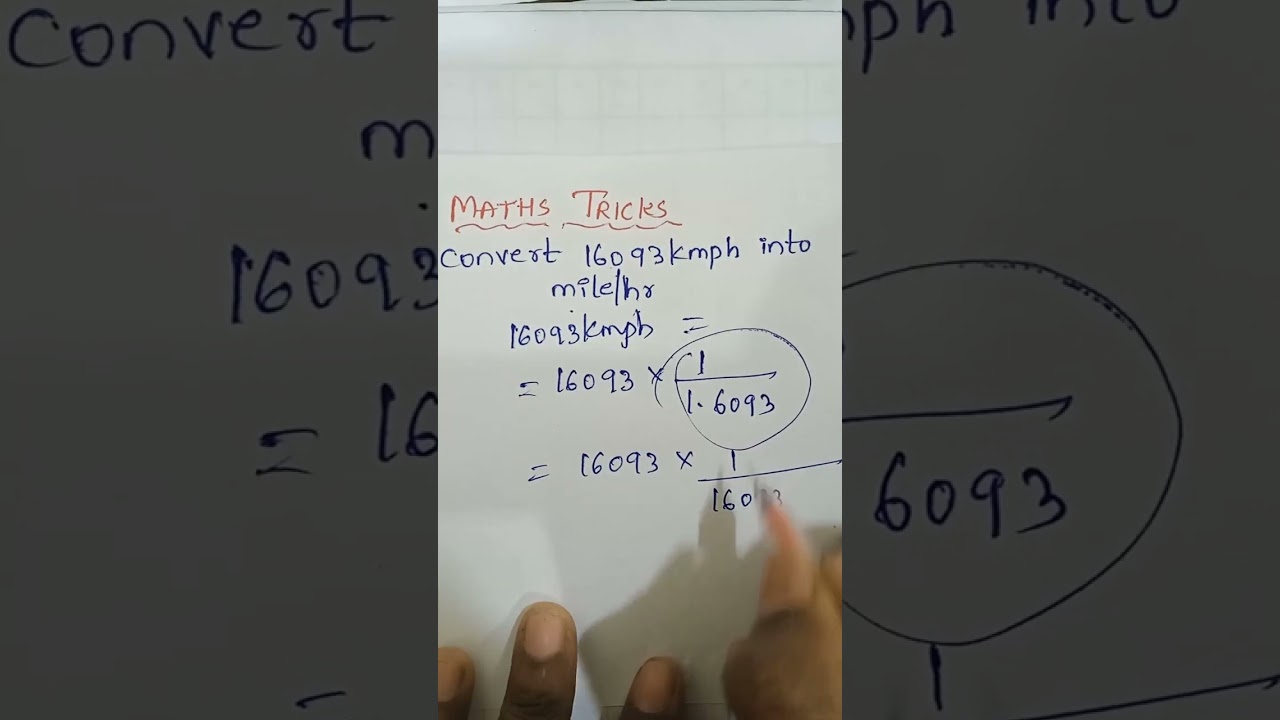 MATHS TRICKS
Convert 16093kmph into
mile/hr
16093kmph =
= 16093 × 1
1.6093
= 16093 × 1